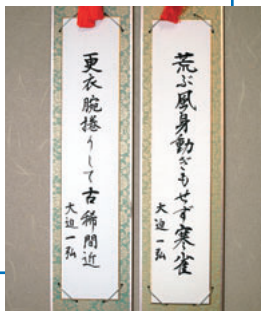 荒ぶ風身動ぎもせず寒雀
大迫一弘
更衣腕捲りして古稀間近
大迫一弘